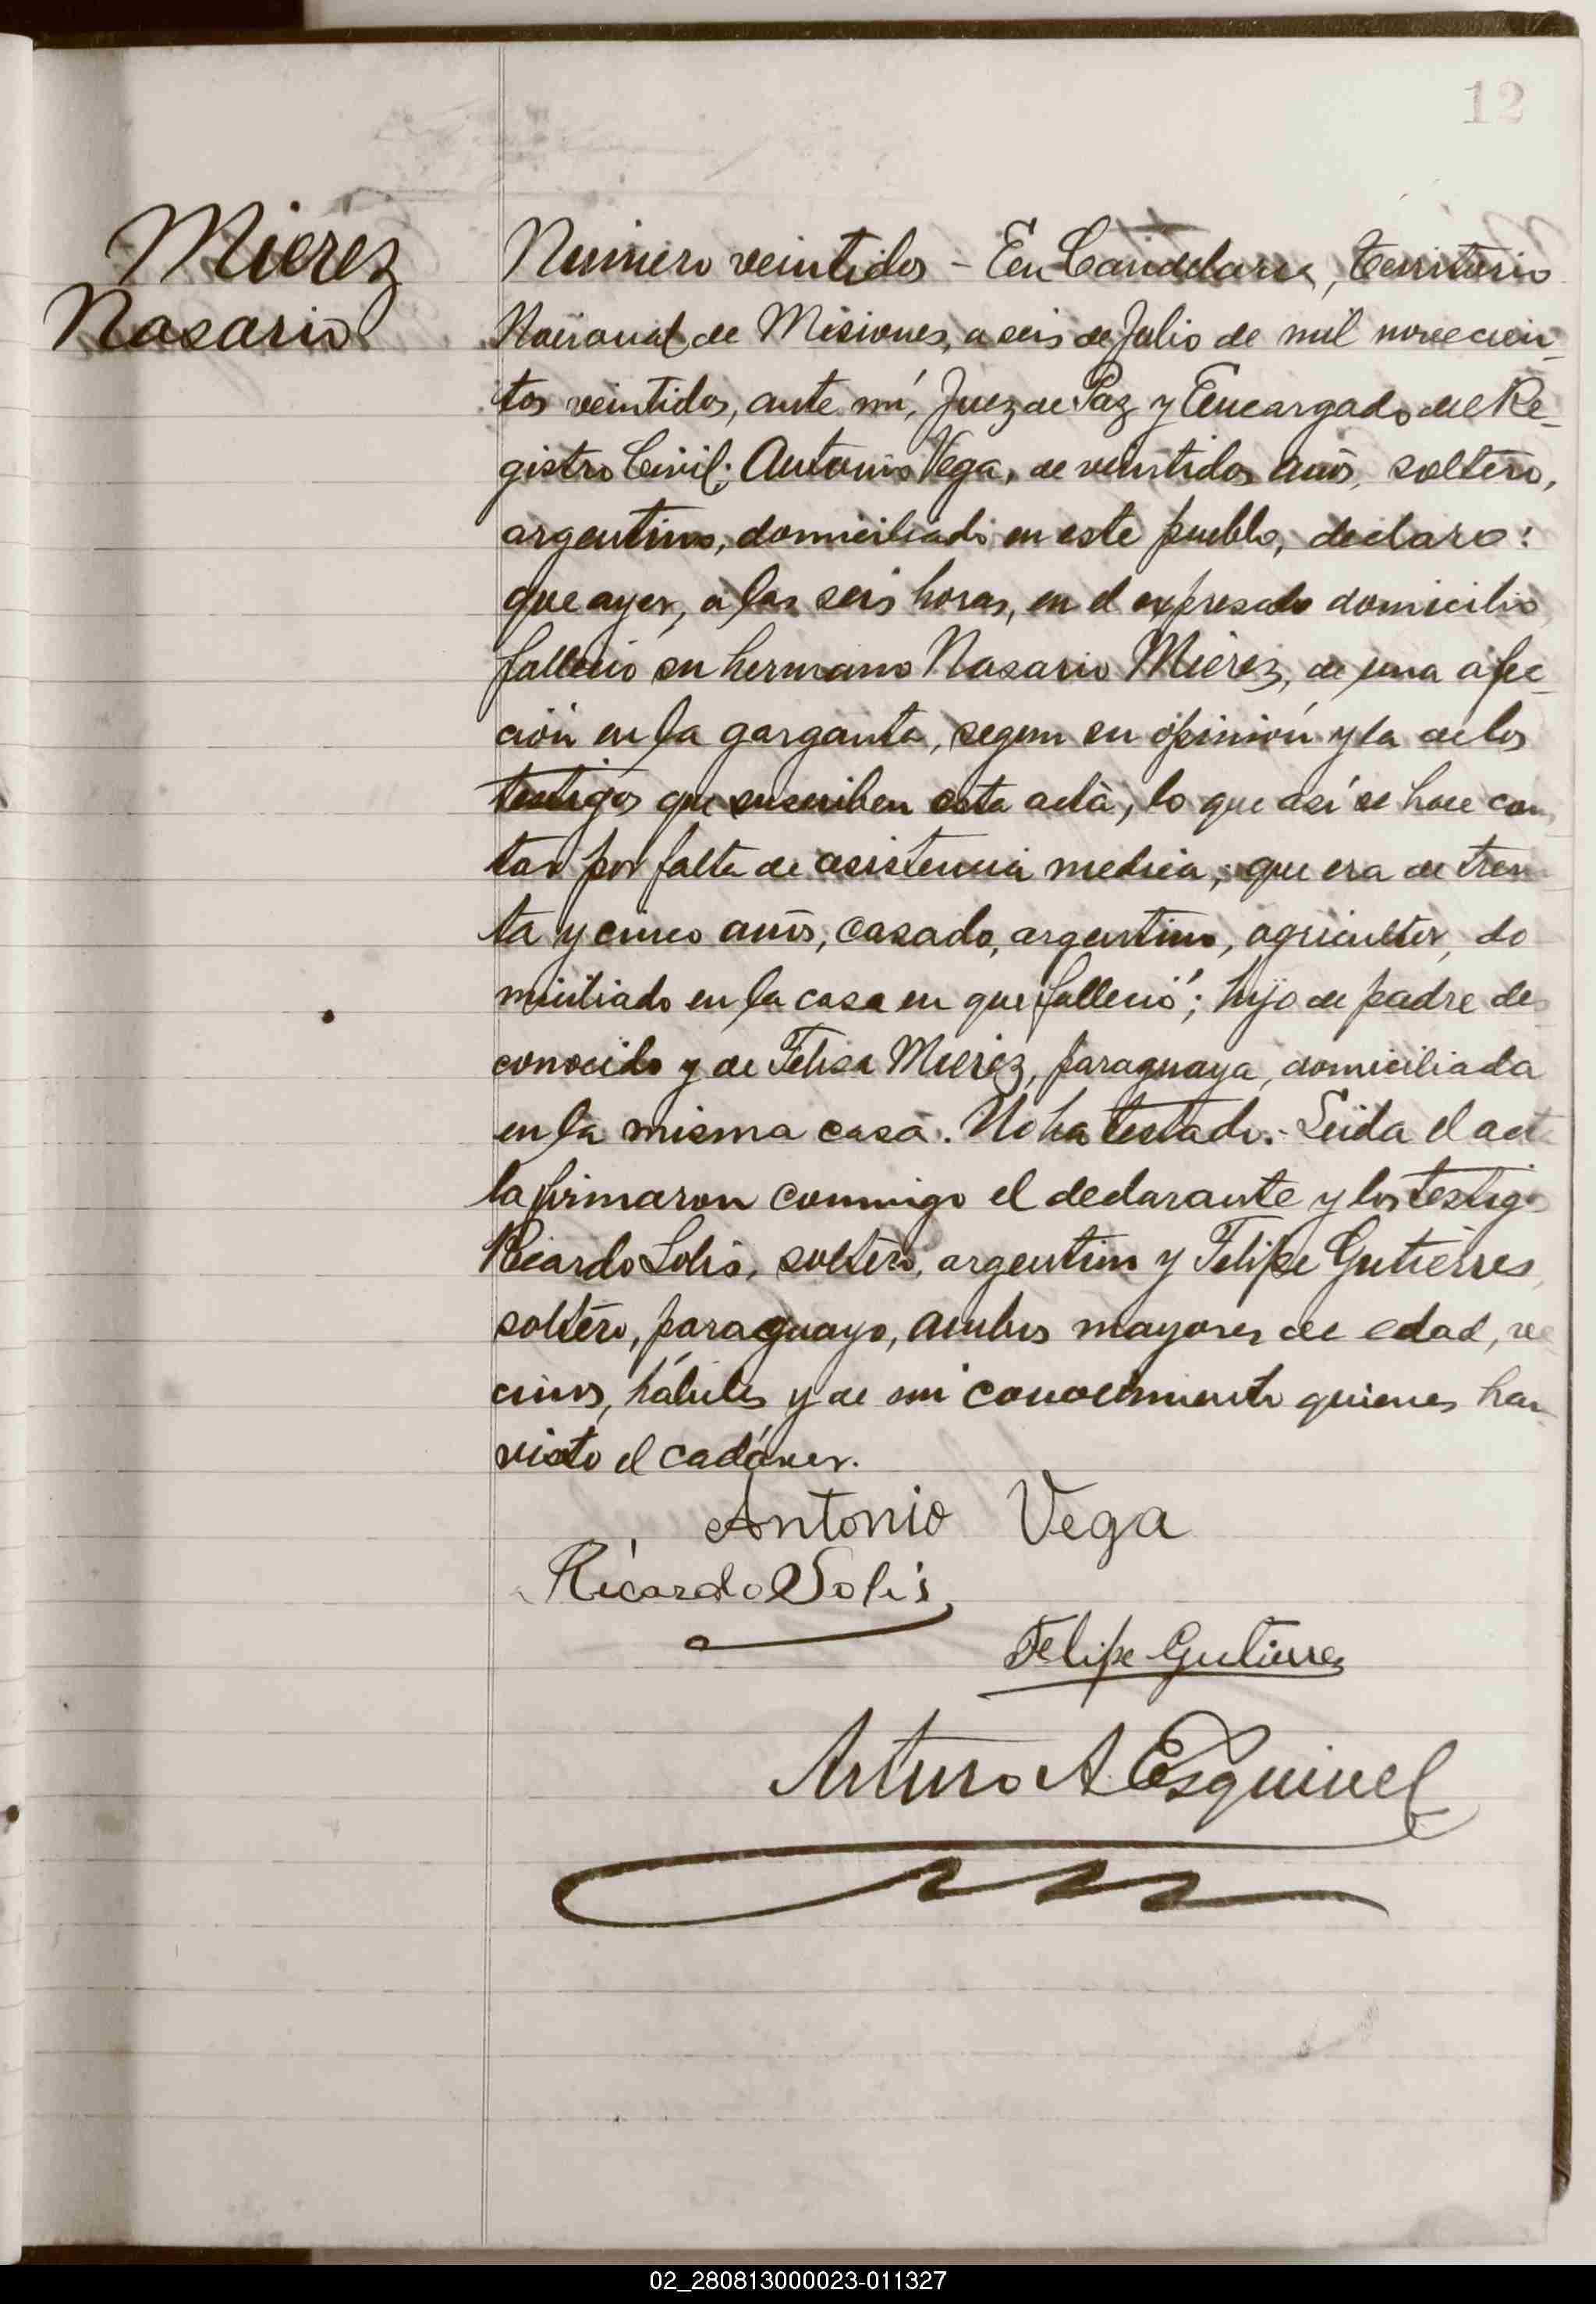 12
Mierez
Nasario
Número veintidos - En Candelaria, Territorio
Nacional de Misiones, a seis de Julio de mil novecien-
tos veintidos, ante mí, Juez de Paz y Encargado del Re-
gistro Civil; Antonio Vega, de veintidos años, soltero,
argentino, domiciliado en este pueblo, declaro:
que ayer, a las seis horas, en el expresado domicilio
falleció su hermano Nasario Mierez, de una afec-
ción en la garganta, segun su opinión y la de los
testigos que suscriben esta acta, lo que así se hace cons
tar por falta de asistencia medica, que era de trein
ta y cinco años, casado, argentino, agricultor, do
miciliado en la casa en que falleció; hijo de padre des
conocido y de Felisa Mierez, paraguaya, domiciliada
en la misma casa. No ha testado. Leída el acta
la firmaron conmigo el declarante y los testigos
Ricardo Solis, soltero, argentino y Felipe Gutierres,
soltero, paraguayo, ambos mayores de edad, ve
cinos, hábiles y de mi conocimiento quienes han
visto el cadáver.
Antonio Vega
Ricardo Solis
Felipe Gutierrez
Arturo A Esquivel
02_280813000023-011327